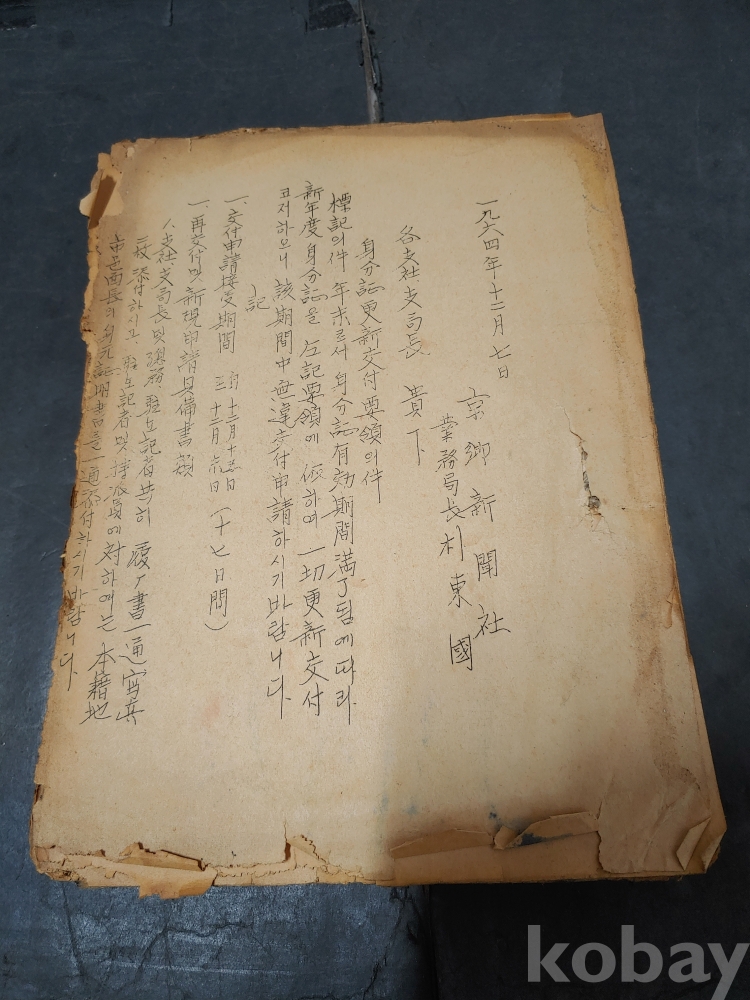 一九六四年十二月七日
京鄕新聞社
業務局長 朴東國
各支社支局長 貴下
身分証更新交付要領의件
標記의件 年末로서 身分証有効期間満了됨에따라
新年度身分証을 左記要領에 依하여 一切更新交付
코저하오니 該期間中無違交付申請하시기바랍니다.
記
一. 交付申請接受期間 自十二月十五日
至十二月 日 (十七日間)
一. 再交付및新規申請具備書類
支社支局長및總務, 駐在記者共히 履歷書一通 寫真
二枚添付하시고, 駐在記者및特派員에対하여는 本籍地
市邑面長의 身元証明書를一通添付하시기바랍니다.
kobay